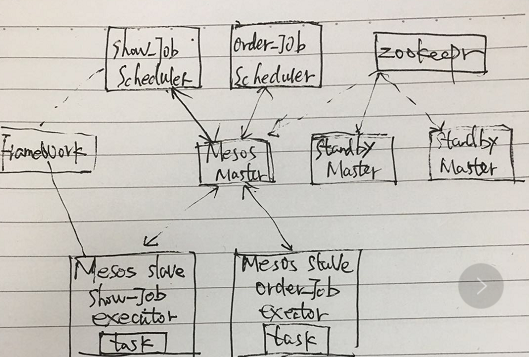 show_Job
Scheduler
order_Job
Scheduler
zookeepr
Framework
Mesos
Master
Standby
Master
Standby
Master
Mesos slave
show_Job
executor
task
Mesos slave
order_Job
exector
task